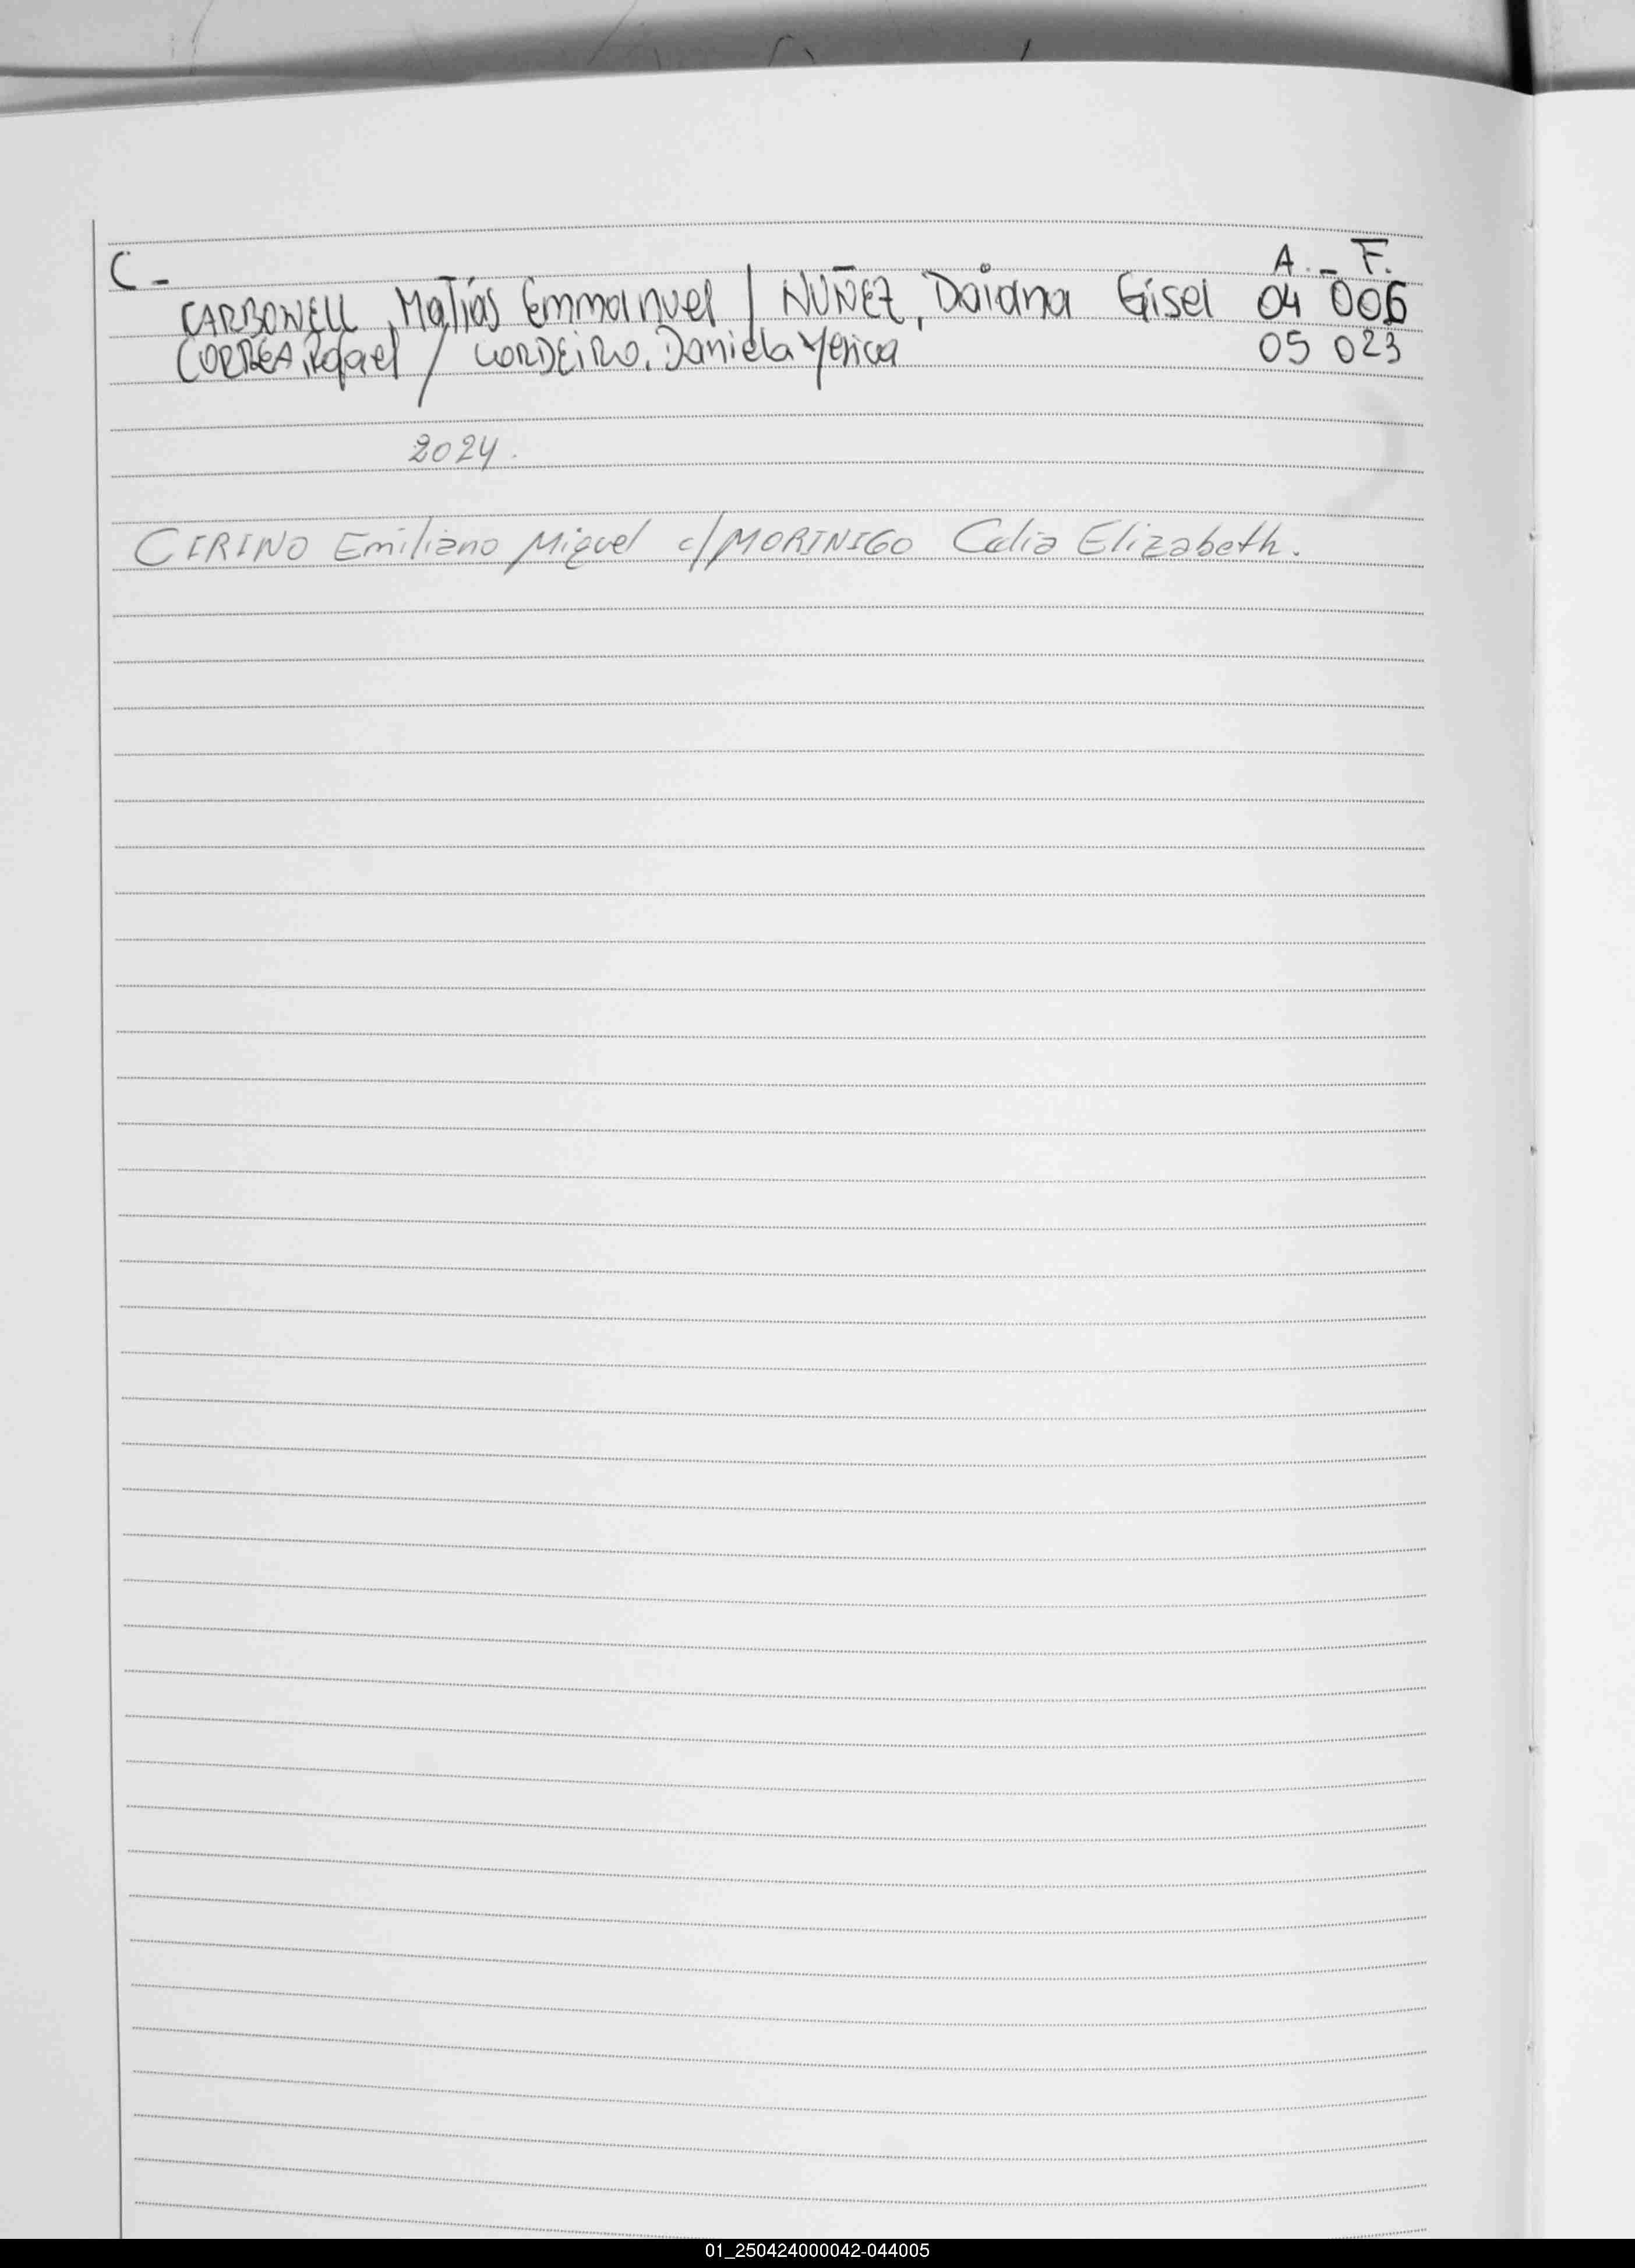 C - A. - F.
CARBONELL, Matías Emmanuel / NUÑEZ, Daiana Gisel 04 006
CORREA, Rafael / CORDEIRO, Daniela Yesica 05 023
2024.
CIRINO Emiliano Miguel c/ MORINIGO Celia Elizabeth.
01_250424000042-044005